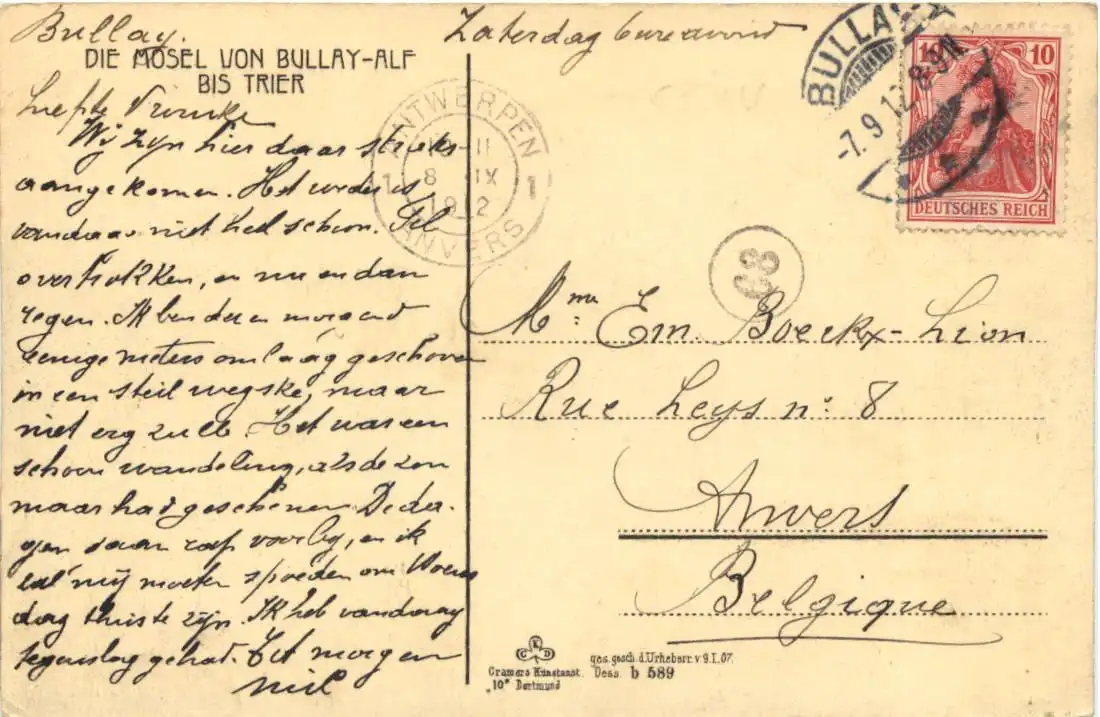 Bullay. Zaterdag
DIE MOSEL VON BULLAY-ALF
BIS TRIER
Liefste
Wij zijn hier daar straks
aangekomen. Het weder is
vandaag niet heel schoon.
overtrokken, en nu en dan
regen. Ik ben dezen morgend
eenige meters omlaag geschoven
in een steil wegske, maar
niet erg zulle. Het was een
schoon wandeling, als de zon
maar had geschenen. De da-
gen gaan rap voorbij, en ik
zal mij moeten spoeden om Woens
dag thuis te zijn. Ik heb vandaag
tegenslag gehad. Tot morgen
Mil
ANTWERPEN
11
8 IX
1912
1 1
ANVERS
BULLAY
-7.9.12.8-9N
10
DEUTSCHES REICH
68
Mme Em. Boeckx-Lion
Rue Leys no: 8
Anvers
Belgique
K
C D
Cramers Kunstanst.
"10" Dortmund
ges. gesch. d. Urheberr. v 9.I.07.
Dess. b 589